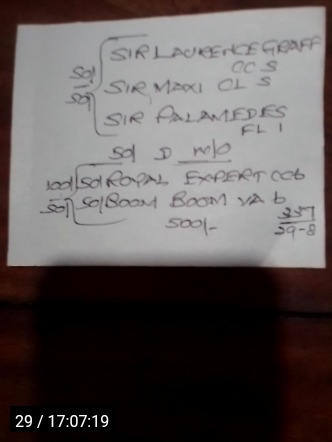 SIR LAURENCE GRAFF
CC S
50/
50/
SIR MAXI CL S
SIR PALAMEDES
FL 1
50/ D w/o
100/ 50/ ROYAL EXPERT CC 6
50/ 50/ BOOM BOOM VA 6
500/-
357
29-8
29 / 17:07:19